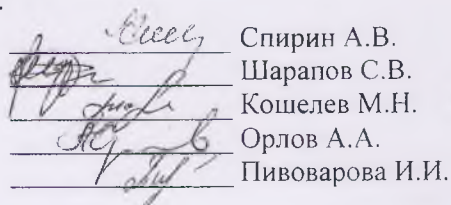 Спирин А.В.
Шарапов С.В.
Кошелев М.Н.
Орлов А.А.
Пивоварова И.И.